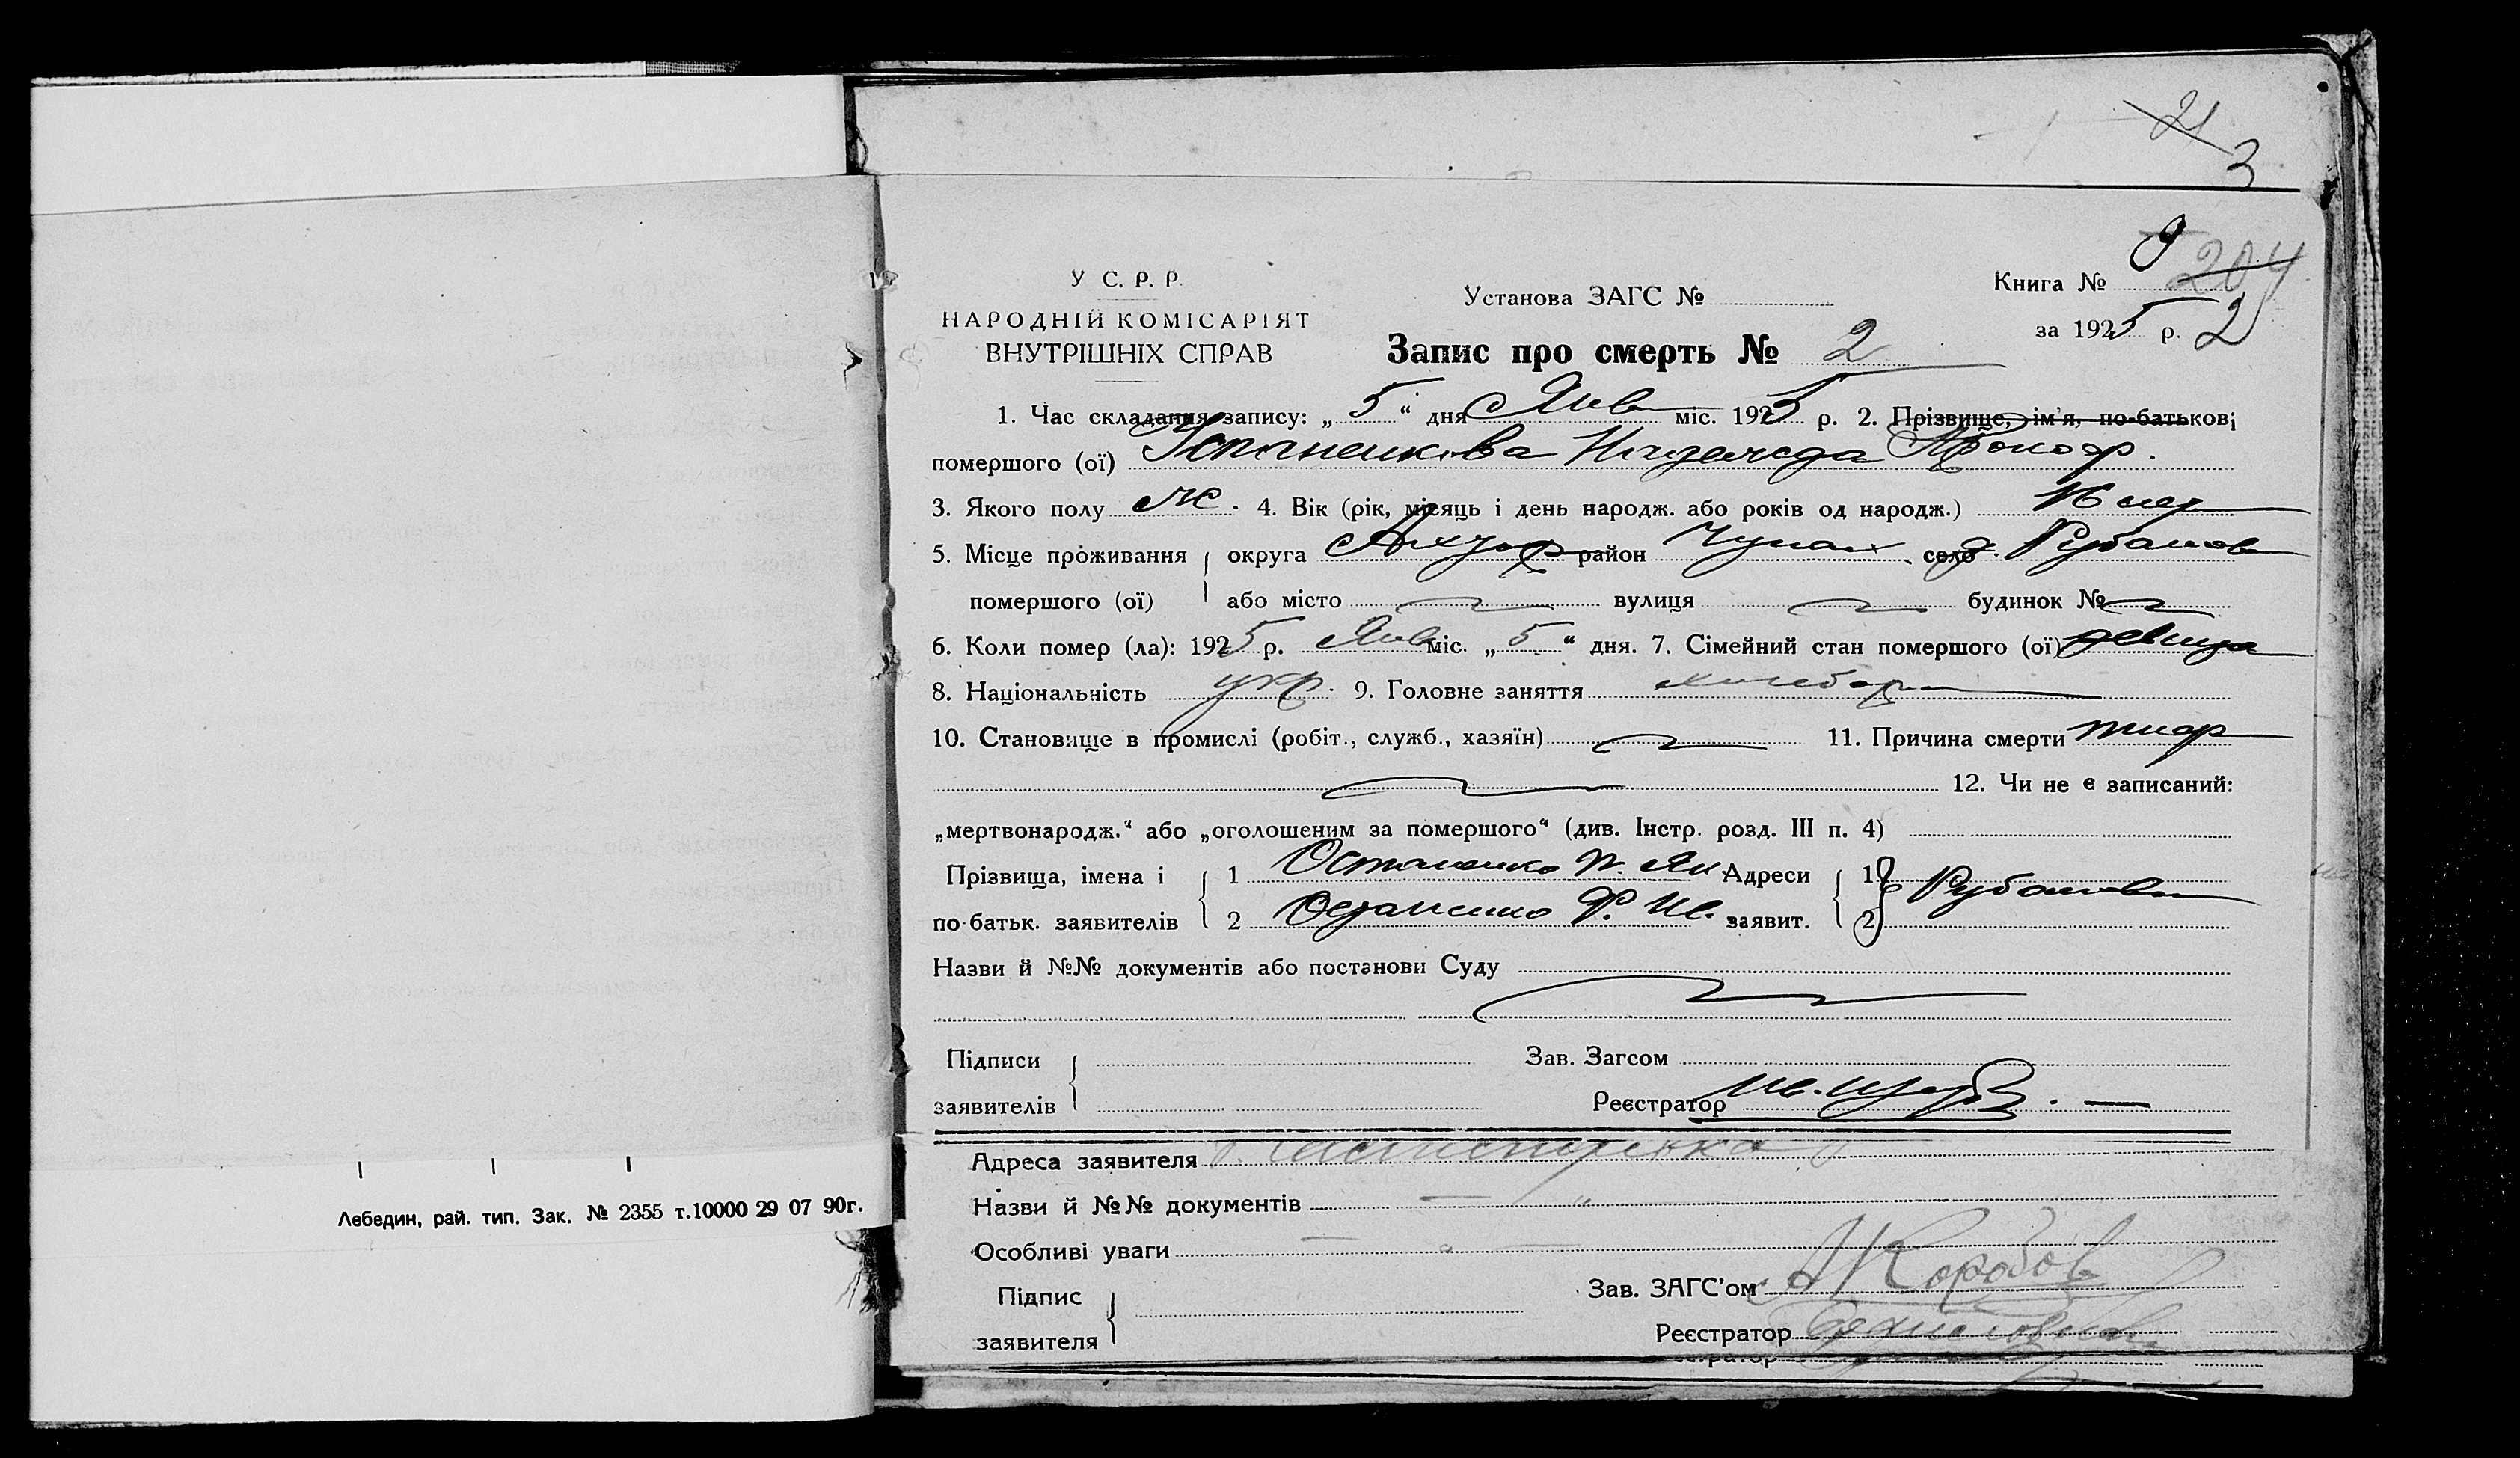 21
3
9
У С. Р. Р.
НАРОДНІЙ КОМІСАРІЯТ
ВНУТРІШНІХ СПРАВ
Установа ЗАГС №
Книга № 204
за 1925 р. 2
Запис про смерть № 2
1. Час складання запису: „5“ дня Янв міс. 1925 р. 2. Прізвище, ім'я, по-батькові
помершого (ої) Надежда Прокоф.
3. Якого полу ж. 4. Вік (рік, місяць і день народж. або років од народж.) 16
5. Місце проживання округа Ахтыр район Чупах село д. Рубанов
помершого (ої) або місто вулиця будинок №
6. Коли помер (ла): 1925 р. Янв міс. „5“ дня. 7. Сімейний стан помершого (ої) девица
8. Національність укр. 9. Головне заняття хлебор
10. Становище в промислі (робіт., служб., хазяїн) 11. Причина смерти тиф
12. Чи не є записаний:
„мертвонародж.“ або „оголошеним за помершого“ (див. Інстр. розд. III п. 4)
Прізвища, імена і 1 Остапенко П. Як. Адреси 1
по-батьк. заявителів 2 Остапенко Ф. Ив. заявит. 2 Рубанов
Назви й №№ документів або постанови Суду
Підписи Зав. Загсом
заявителів Реєстратор
Адреса заявителя
Назви й №№ документів
Особливі уваги
Підпис Зав. ЗАГС'ом Коробов
заявителя Реєстратор
Лебедин, рай. тип. Зак. № 2355 т.10000 29 07 90г.